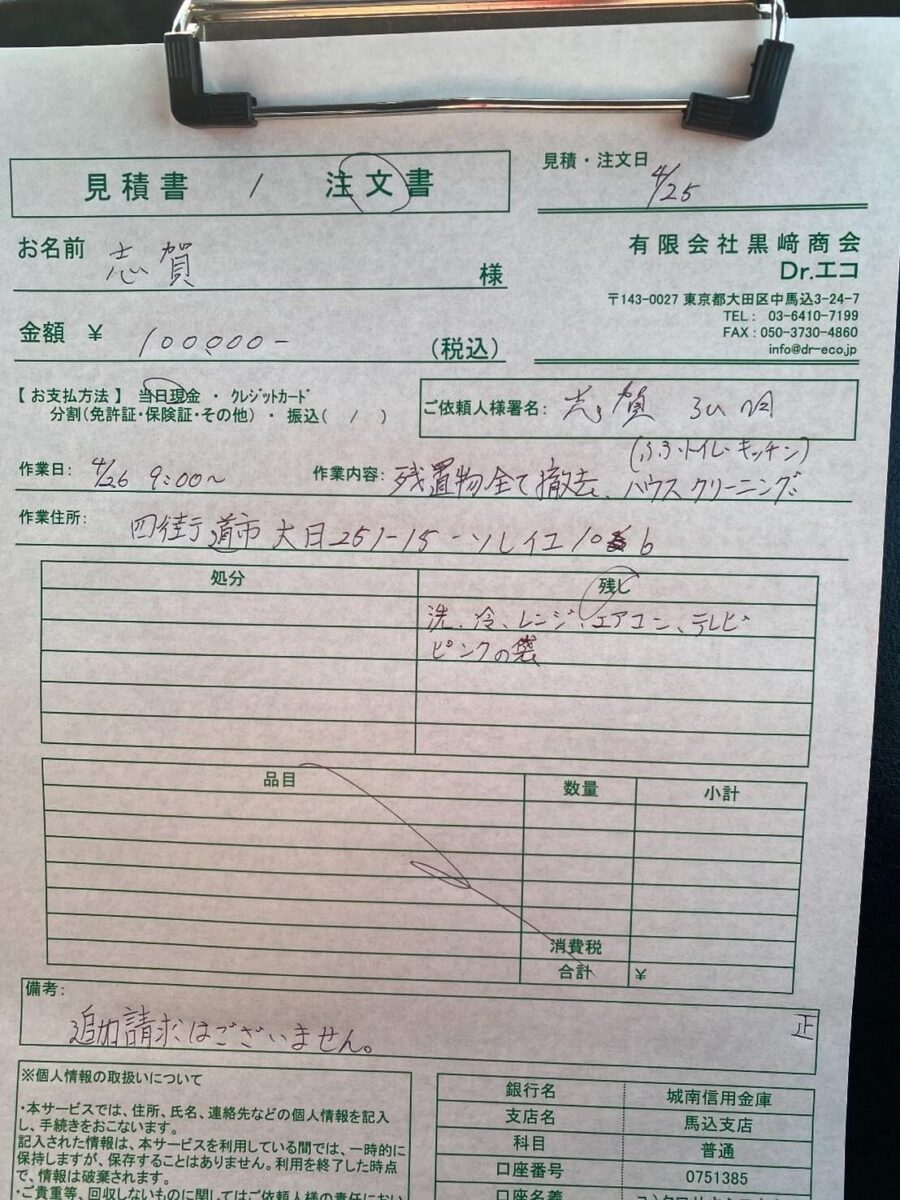 見積書 / 注文書
見積・注文日
4/25
お名前 志賀 様
有限会社黒﨑商会
Dr.エコ
〒143-0027 東京都大田区中馬込3-24-7
TEL: 03-6410-7199
FAX:050-3730-4860
info@dr-eco.jp
金額 ¥ 100,000- (税込)
【お支払方法】 当日現金 ・ クレジットカード
分割(免許証・保険証・その他) ・ 振込( / )
ご依頼人様署名: 志賀
作業日: 4/26 9:00~
作業内容: 残置物全て撤去、ハウスクリーニング
(ふろ・トイレ・キッチン)
作業住所: 四街道市大日251-15-ソレイユ10 6
処分 残し
洗、冷、レンジ、エアコン、テレビ
ピンクの袋
品目 数量 小計
消費税
合計 ¥
備考:
追加請求はございません。 正
※個人情報の取扱いについて
・本サービスでは、住所、氏名、連絡先などの個人情報を記入
し、手続きをおこないます。
記入された情報は、本サービスを利用している間では、一時的に
保持しますが、保存することはありません。利用を終了した時点
で、情報は破棄されます。
・ご貴重等、回収しないものに関してはご依頼人様の責任におい
銀行名 城南信用金庫
支店名 馬込支店
科目 普通
口座番号 0751385
口座名義